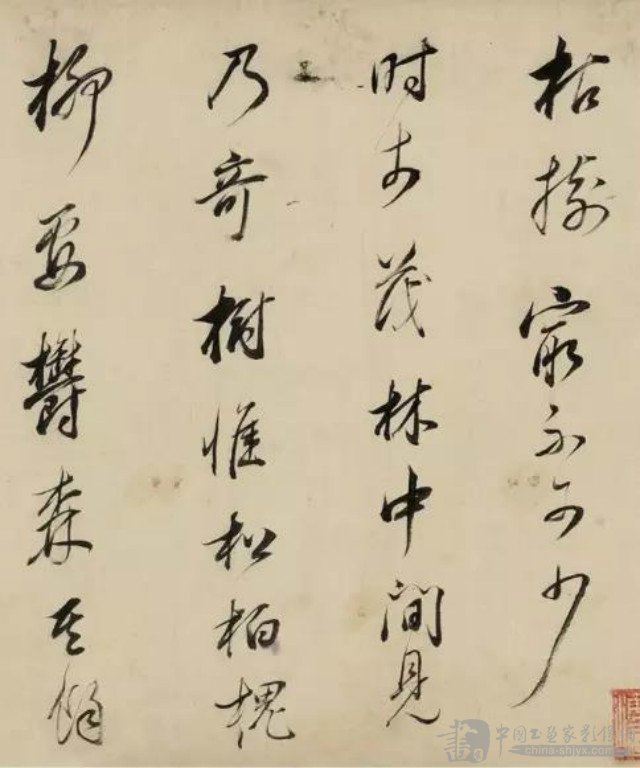 枯樹最不可少
時於茂林中間見
乃奇樹惟松柏槐
柳要欝森其餘
中国书画家影像网
china-shjyx.com